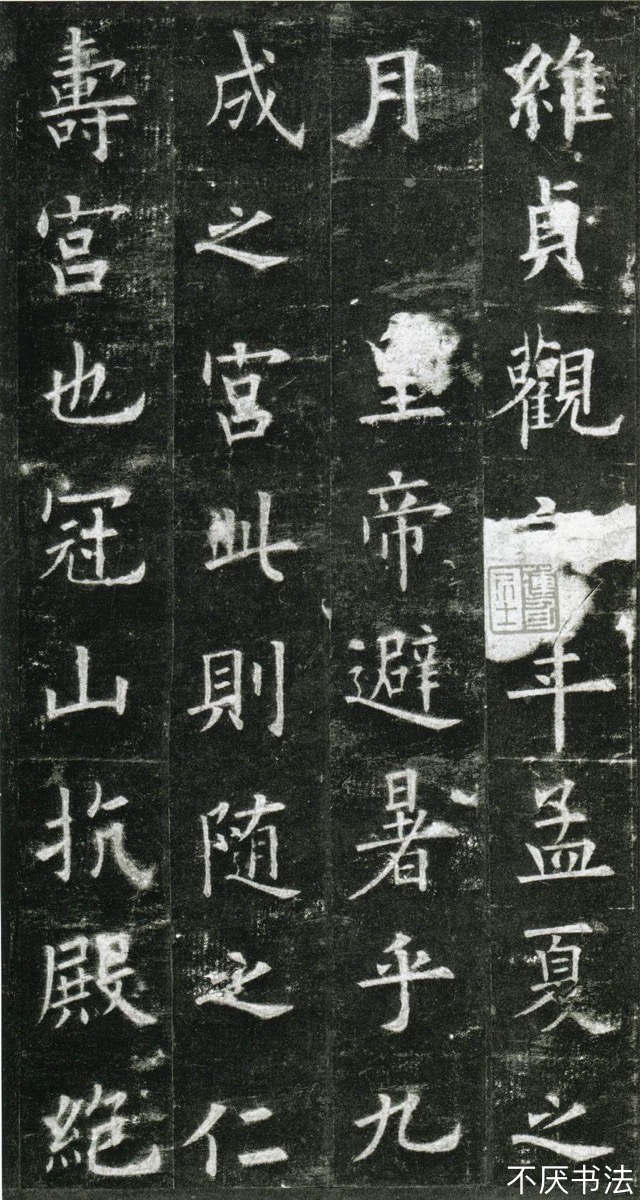 維貞觀六年孟夏之
月皇帝避暑乎九
成之宮此則随之仁
壽宮也冠山抗殿絶
不厌书法